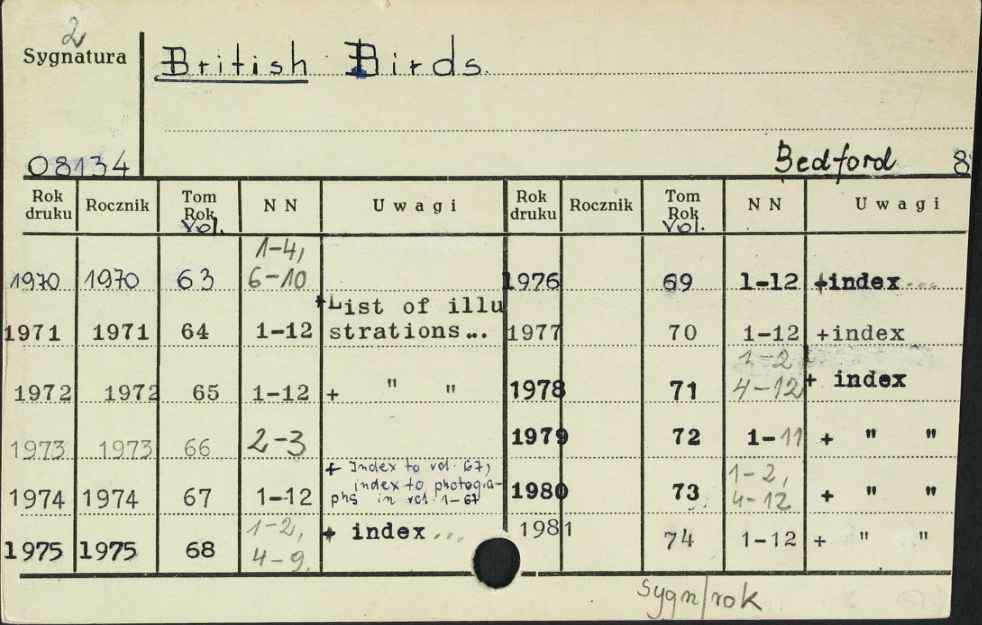 2
Sygnatura
British Birds.
08134
Bedford 8
Rok druku Rocznik Tom Rok Vol. N N Uwagi Rok druku Rocznik Tom Rok Vol. N N Uwagi
1970 1970 63 1-4, 6-10
1971 1971 64 1-12 +List of illu strations...
1972 1972 65 1-12 + " "
1973 1973 66 2-3
1974 1974 67 1-12 + Index to vol. 67, index to photogra- phs in vol. 1-67
1975 1975 68 1-2, 4-9. + index...
1976 69 1-12 +index...
1977 70 1-12 +index
1978 71 1-2 4-12 + index
1979 72 1-11 + " "
1980 73 1-2, 4-12 + " "
1981 74 1-12 + " "
Sygn/rok